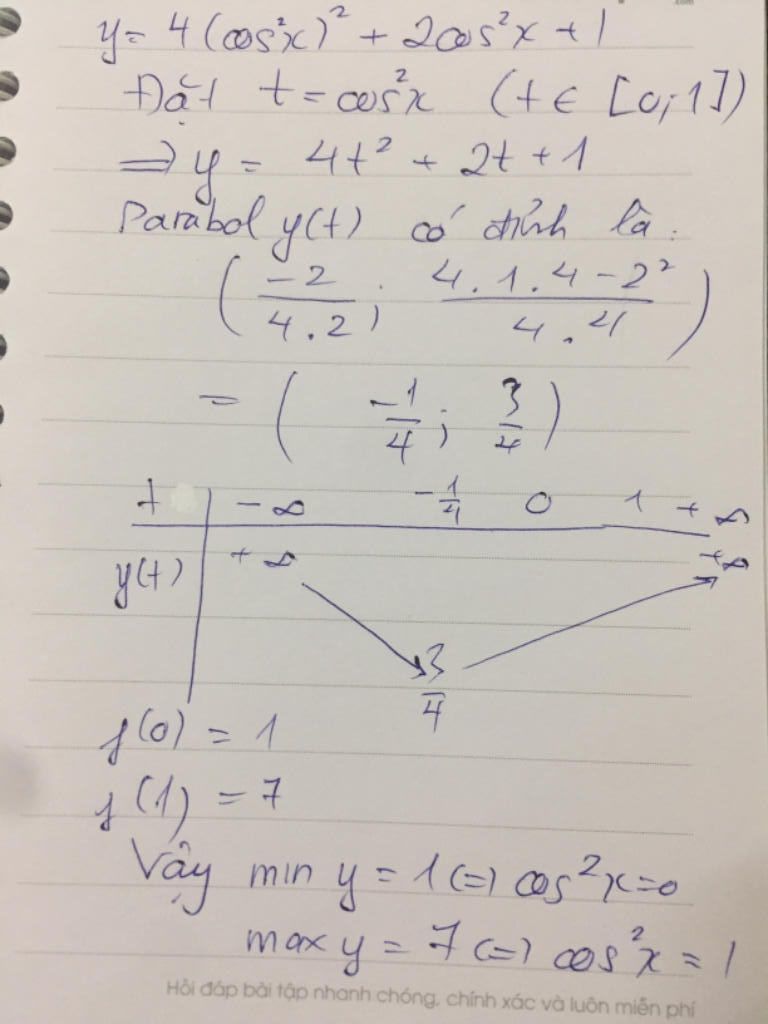 y = 4(cos²x)² + 2cos²x + 1
Đặt t = cos²x (t ∈ [0;1])
=> y = 4t² + 2t + 1
Parabol y(t) có đỉnh là:
(-2/4.2; 4.1.4-2²/4.4)
= (-1/4; 3/4)
t -∞ -1/4 0 1 +∞
y(t) +∞ 3/4 +∞
f(0) = 1
f(1) = 7
Vậy min y = 1 (=) cos²x=0
max y = 7 (=) cos²x = 1
Hỏi đáp bài tập nhanh chóng, chính xác và luôn miễn phí